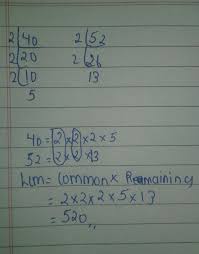 2 | 40    2 | 52
2 | 20    2 | 26
2 | 10    13
5
40 = 2 × 2 × 2 × 5
52 = 2 × 2 × 13
Lcm = Common × Remaining
= 2 × 2 × 2 × 5 × 13
= 520,,